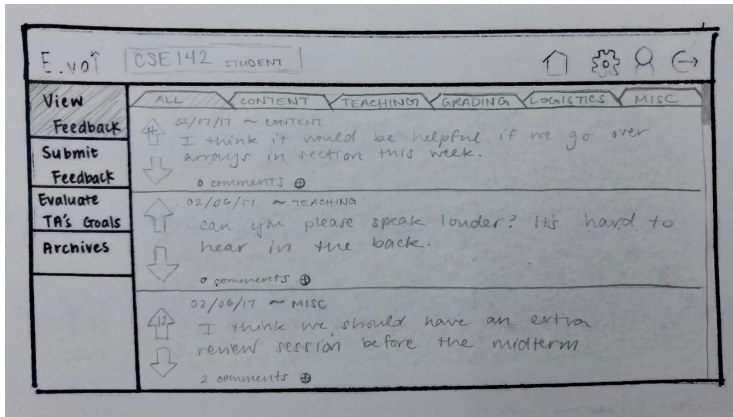 E.voi
CSE142 STUDENT
View
Feedback
Submit
Feedback
Evaluate
TA's Goals
Archives
ALL CONTENT TEACHING GRADING LOGISTICS MISC
02/07/17 ~ CONTENT
I think it would be helpful if we go over
arrays in section this week.
0 comments
02/06/17 ~ TEACHING
can you please speak louder? It's hard to
hear in the back.
0 comments
02/06/17 ~ MISC
12
I think we should have an extra
review session before the midterm
2 comments